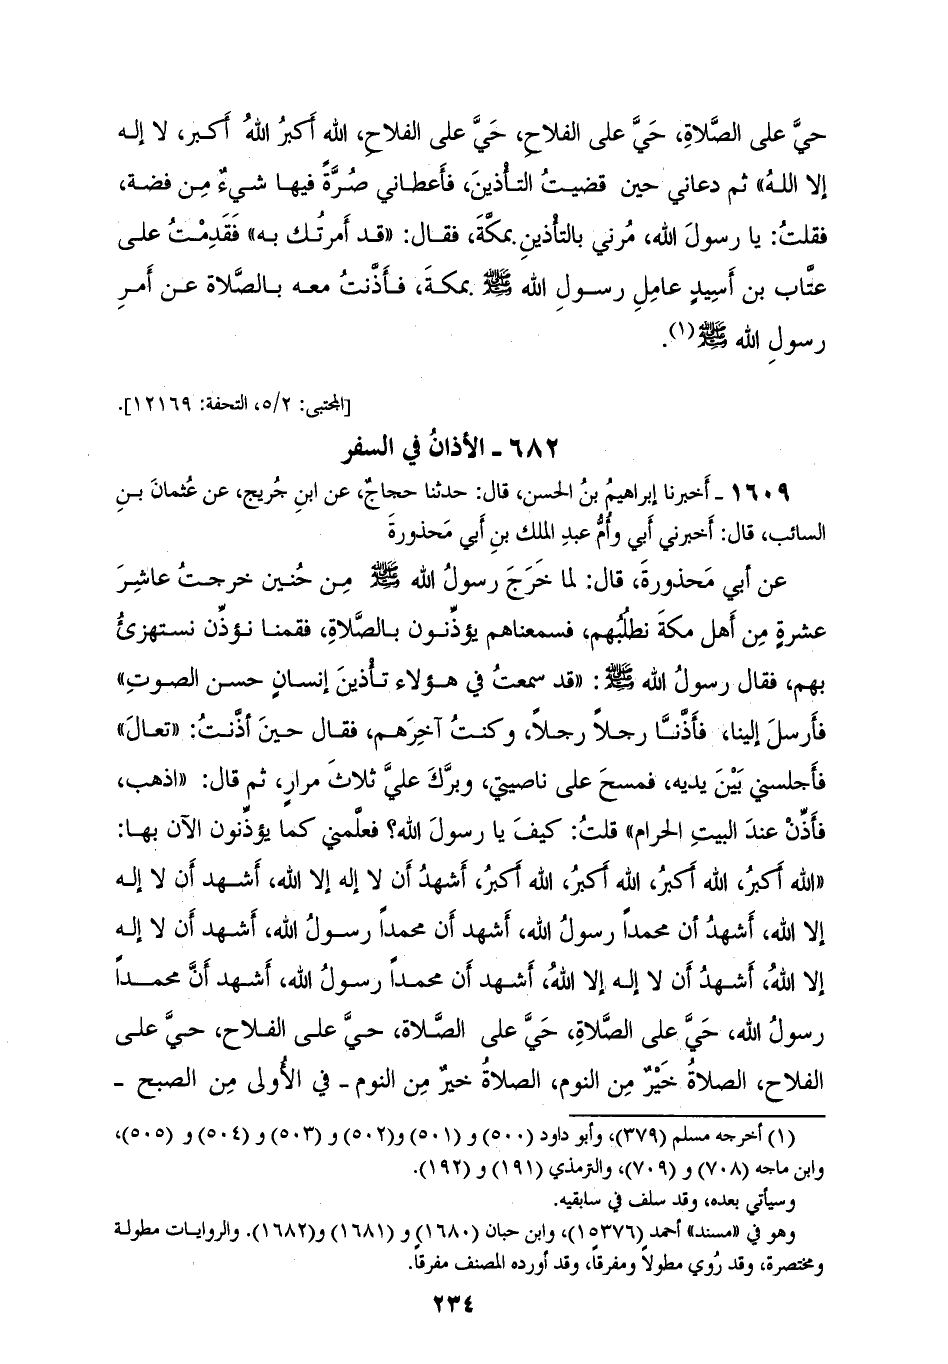 حيَّ على الصَّلاةِ، حَيَّ على الفلاحِ، حَيَّ على الفلاحِ، الله أَكبرُ اللهُ أَكـبر، لا إلـه
إلا اللـهُ» ثم دعاني حين قضيتُ التـأْذينَ، فأَعطاني صُرَّةً فيهـا شيءٌ مِـن فضـة،
فقلتُ: يا رسولَ الله، مُرني بالتأْذينِ بمكَّةَ، فقـال: «قـد أَمرتُـك بـه» فقَدِمْـتُ علـى
عتَّاب بن أَسِيدٍ عاملِ رسـولِ الله ﷺ بمكـةَ، فـأَذَّنـتُ معـه بـالصَّلاة عـن أَمـرِ
رسولِ الله ﷺ(١).
[المجتبى: ٥/٢، التحفة: ١٢١٦٩].
٦٨٢ ـ الأذانُ في السفر
١٦٠٩ ـ أَخبرنا إبراهيمُ بنُ الحسن، قال: حدثنا حجاجٌ، عن ابنِ جُريج، عن عُثمانَ بـنِ
السائب، قال: أَخبرني أَبي وأُمُّ عبدِ الملك بنِ أَبي مَحذورةَ
عن أَبي مَحذورةَ، قال: لما خَرَجَ رسولُ الله ﷺ مِـن حُنـين خرجـتُ عاشِـرَ
عشرةٍ مِن أَهل مكةَ نطلُبُهم، فسمعناهم يؤذِّنـون بـالصَّلاةِ، فقمنـا نـؤذِّن نسـتهزئُ
بهم، فقال رسولُ الله ﷺ: «قد سمعتُ في هـؤلاء تـأْذينَ إنسـانٍ حسـن الصـوتِ»
فأَرسلَ إلينا، فأَذَّنـَّا رجـلاً رجـلاً، وكنـتُ آخِرَهـم، فقـال حـينَ أذَّنـتُ: «تعـالَ»
فأَجلسني بَيْنَ يديه، فمسحَ على ناصيتي، وبرَّكَ عليَّ ثلاثَ مرارٍ، ثم قال: «اذهب،
فأذِّنْ عندَ البيتِ الحرام» قلتُ: كيفَ يا رسولَ الله؟ فعلَّمني كما يؤذِّنون الآن بهـا:
«الله أَكبرُ، الله أَكبرُ، الله أَكبرُ، الله أَكبرُ، أَشهدُ أَن لا إله إلا الله، أَشـهد أَن لا إلـه
إلا الله، أَشهدُ أن محمداً رسولُ الله، أَشهد أَن محمداً رسـولُ الله، أَشـهد أَن لا إلـه
إلا اللهُ، أَشـهدُ أَن لا إلـه إلا اللهُ، أَشـهد أَن محمـداً رسـولُ الله، أَشـهد أَنَّ محمـداً
رسولُ الله، حَيَّ على الصَّلاةِ، حَيَّ على الصَّلاة، حـيَّ علـى الفـلاح، حـيَّ علـى
الفلاح، الصلاةُ خَيْرٌ مِن النوم، الصلاةُ خيرٌ مِن النوم ـ في الأُولى مِن الصبح ـ
(١) أخرجه مسلم (٣٧٩)، وأبو داود (٥٠٠) و (٥٠١) و(٥٠٢) و (٥٠٣) و (٥٠٤) و (٥٠٥)،
وابن ماجه (٧٠٨) و (٧٠٩)، والترمذي (١٩١) و (١٩٢).
وسيأتي بعده، وقد سلف في سابقيه.
وهو في «مسند» أحمد (١٥٣٧٦)، وابن حبان (١٦٨٠) و (١٦٨١) و(١٦٨٢). والروايـات مطولـة
ومختصرة، وقد رُوي مطولاً ومفرقاً، وقد أورده المصنف مفرقاً.
٢٣٤